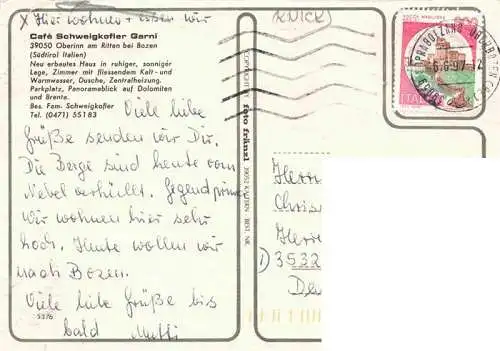 x Hier wohnen + essen wir
(KNICK)
Café Schweigkofler Garni
39050 Oberinn am Ritten bei Bozen
(Südtirol Italien)
Neu erbautes Haus in ruhiger, sonniger
Lage, Zimmer mit fliessendem Kalt- und
Warmwasser, Dusche, Zentralheizung.
Parkplatz, Panoramablick auf Dolomiten
und Brenta.
Bes. Fam. Schweigkofler
Tel. (0471) 55183
Viele liebe
Grüße senden wir Dir.
Die Berge sind heute vom
Nebel verhüllt. Gegend prima
Wir wohnen hier sehr
hoch. Heute wollen wir
nach Bozen.
Viele liebe Grüße bis
bald Mutti
5376
COPYRIGHT foto fränzl 39052 KALTERN BEST. NR.
ITALIA
Herrn
Chris
Herr
3532